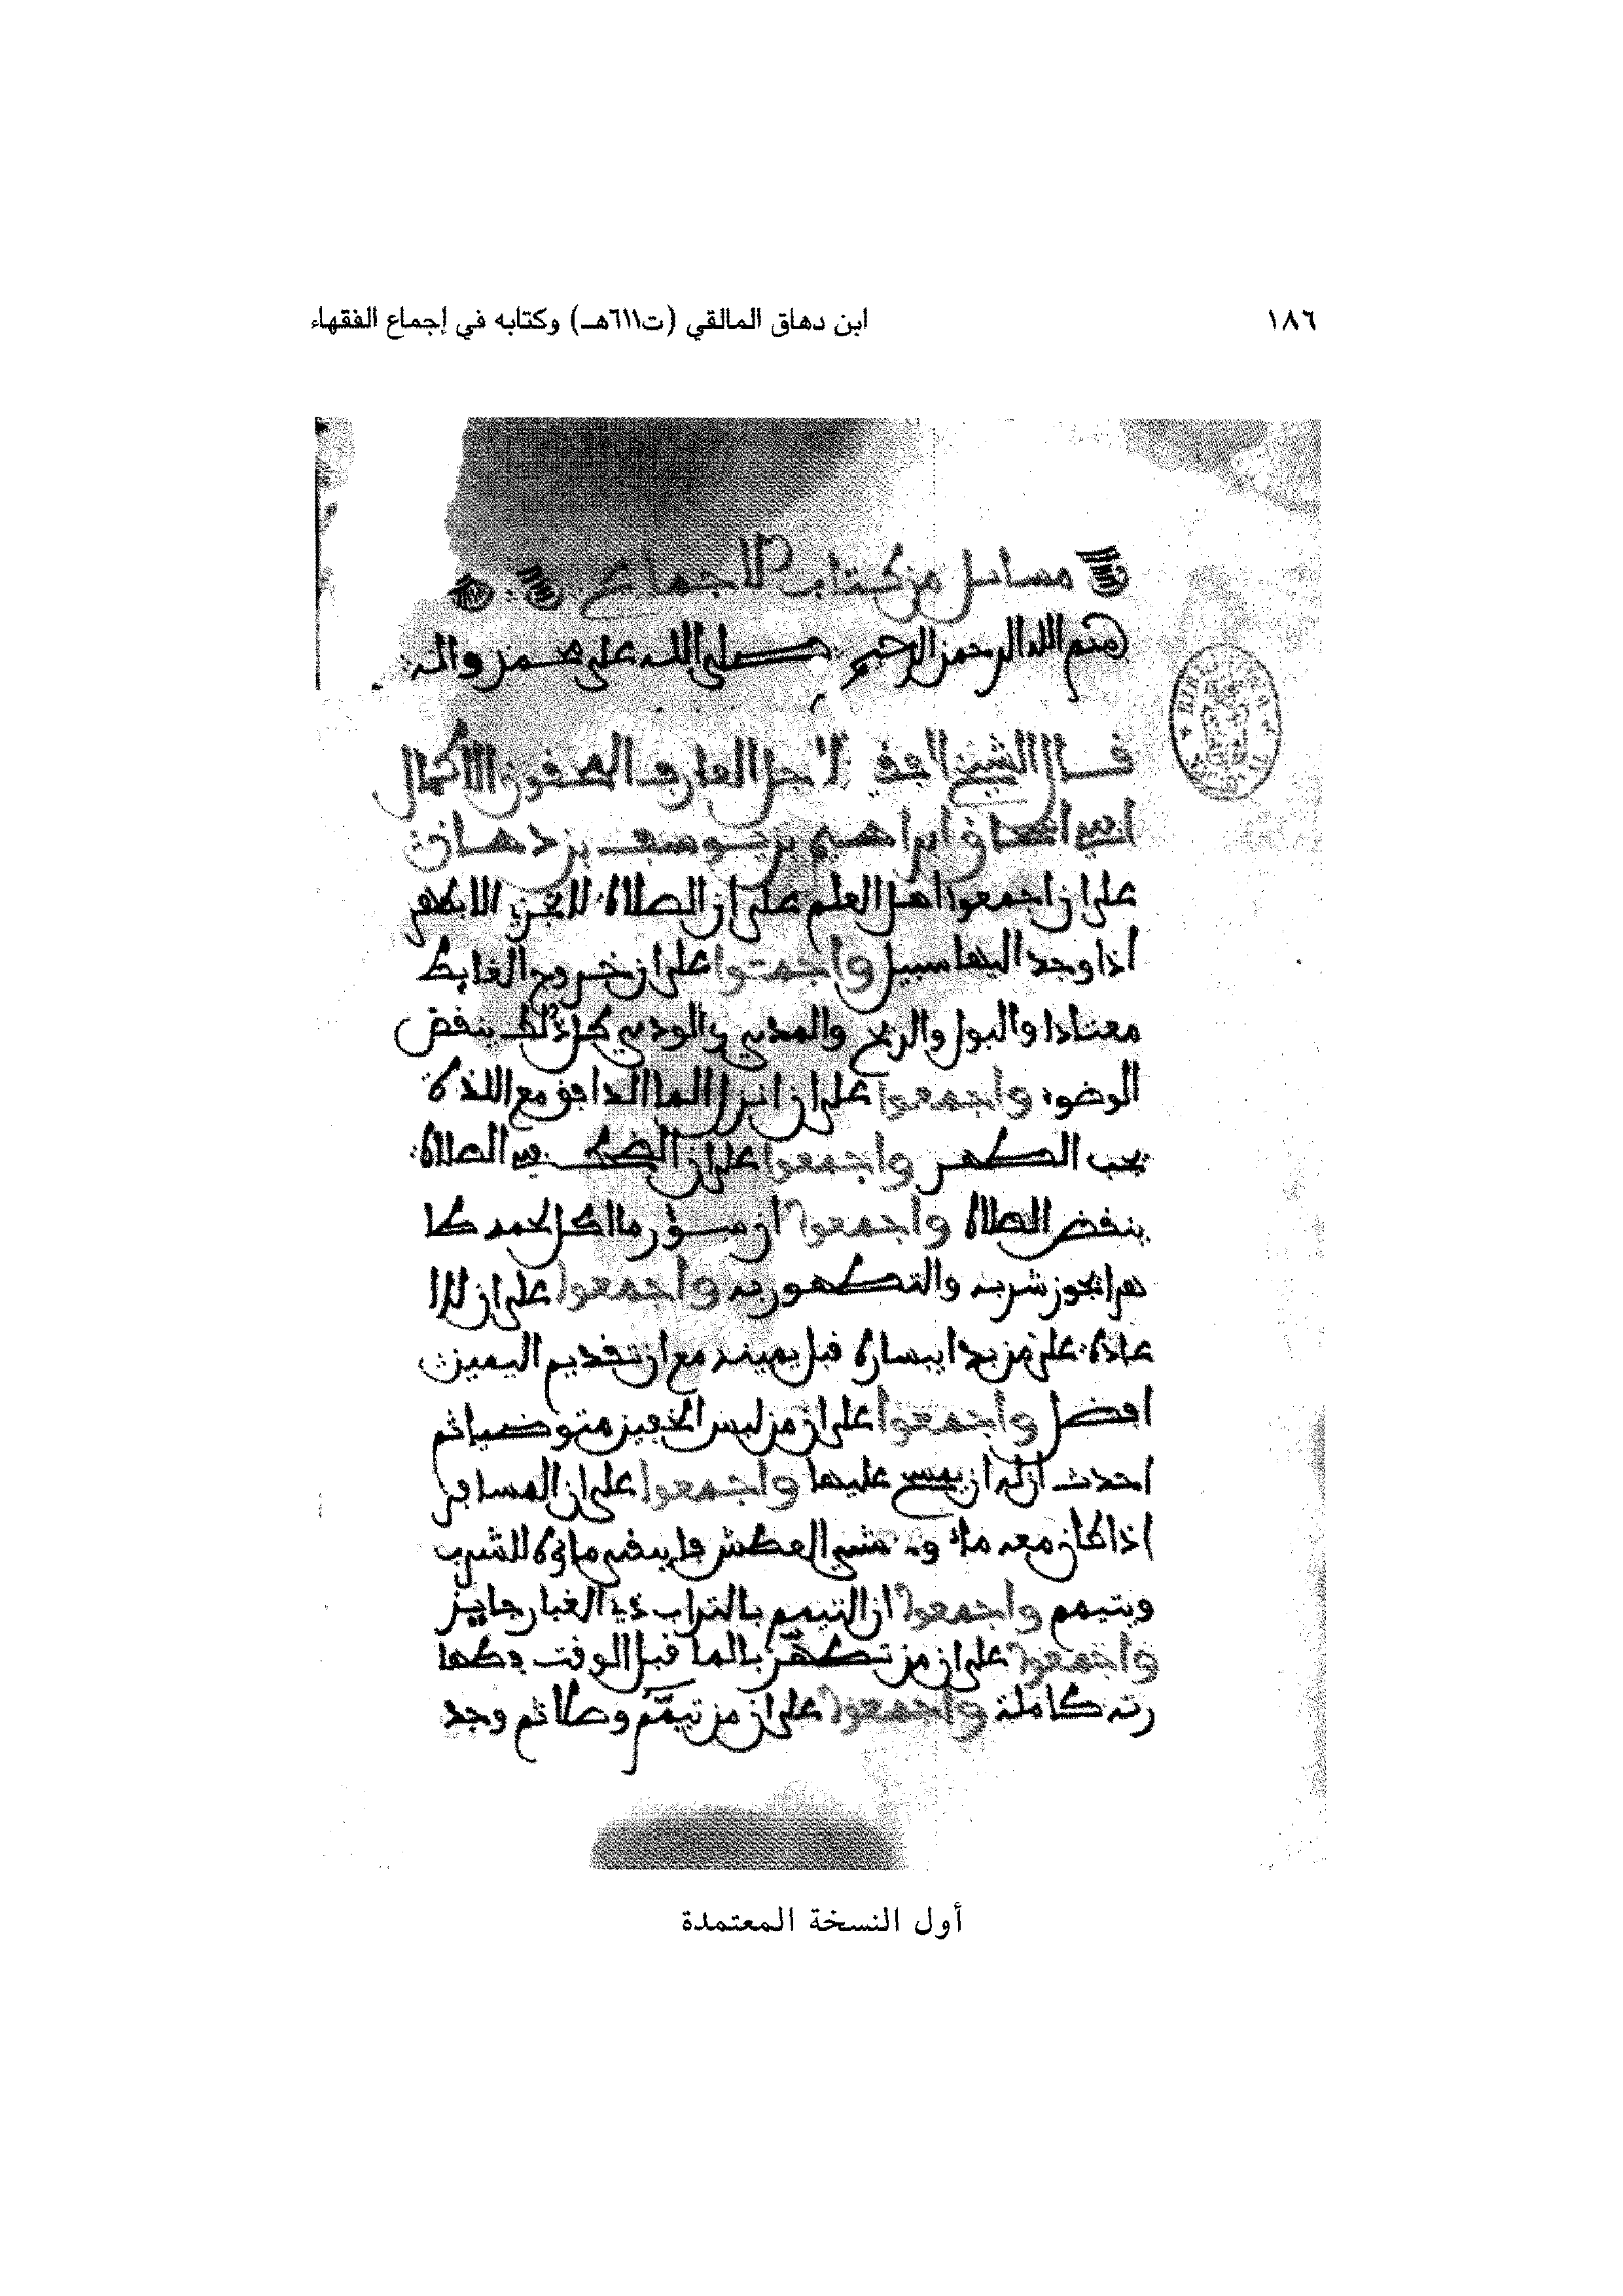 ١٨٦ ابن دهاق المالقي (ت٦١١هـ) وكتابه في إجماع الفقهاء
مسائل من كتاب الاجماع
بسم الله الرحمن الرحيم صلى الله على محمد وءاله
قال الشيخ الفقيه الاجل العارف المحقق الاكمل
ابي اسحاق ابراهيم بن يوسف بن دهاق
على ان اجمعوا اهل العلم على ان الصلاة لا تجزي الا بطهر
اذا وجد اليها سبيل واجمعوا على ان خروج الغايط
معتادا والبول والريح والمذي والودي كل ذلك ينقض
الوضوء واجمعوا على ان انزال الما الدافق مع اللذة
يجب الطهر واجمعوا على ان الضحك في الصلاة
ينقض الصلاة واجمعوا ان سؤر ما اكل لحمه طا
هرا يجوز شربه والتطهور به واجمعوا على ان لا ا
عادة على من بدا بيساره قبل يمينه مع ان تقديم اليمين
افضل واجمعوا على ان من لبس الخفين متوضيا ثم
احدث ان له ان يمسح عليهما واجمعوا على ان المسافر
اذا كان معه ماء وخشي العطش يبقي ماؤه للشرب
ويتيمم واجمعوا ان التيمم بالتراب ذي الغبار جايز
واجمعوا على ان من تطهر بالما قبل الوقت فطها
رته كاملة واجمعوا على ان من تيمم وصلا ثم وجد
أول النسخة المعتمدة